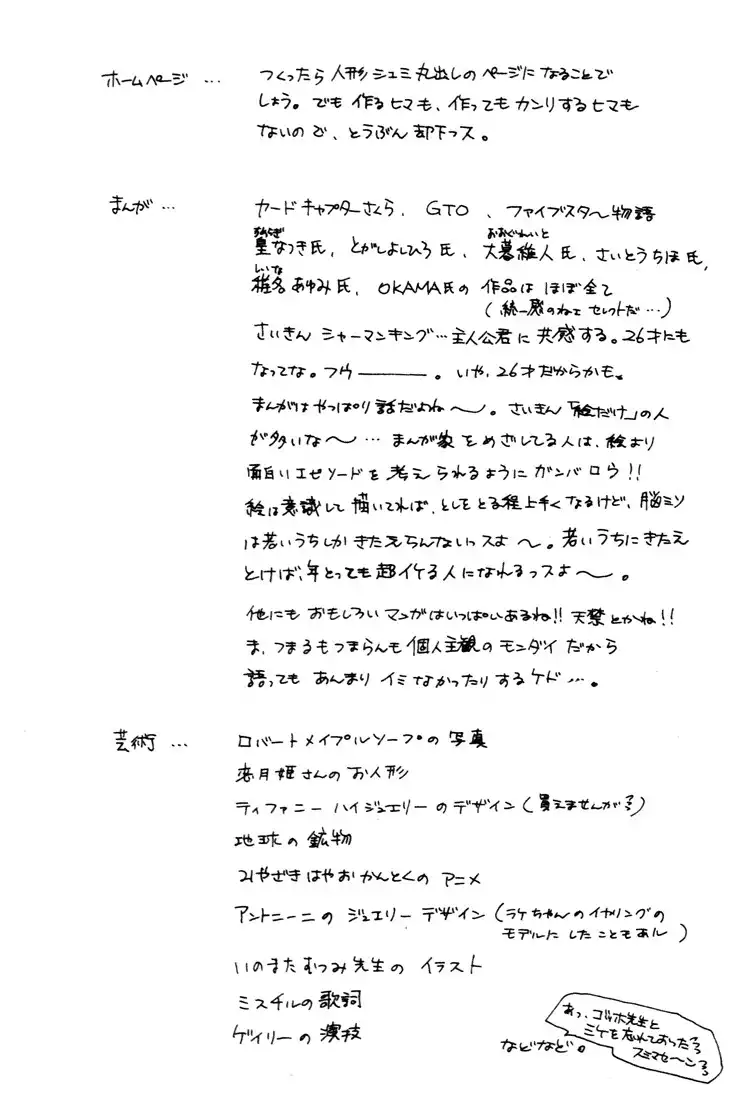 ホームページ … つくったら人形シュミ丸出しのページになることで
しょう。でも作るヒマも、作ってもカンリするヒマも
ないので、とうぶん却下っス。
まんが … カードキャプターさくら、GTO、ファイブスター物語
皇なつき氏、とがしよしひろ氏、大暮維人氏、さいとうちほ氏、
すめらぎ
おおぐれいと
椎名あゆみ氏、OKAMA氏の作品はほぼ全て
しいな
(統一感のねェセレクトだ…)
さいきんシャーマンキング…主人公君に共感する。26才にも
なってな。フウ――――。いや、26才だからかも。
まんがはやっぱり話だよね〜。さいきん「絵だけ」の人
が多いな〜…まんが家をめざしてる人は、絵より
面白いエピソードを考えられるようにガンバロウ!!
絵は意識して描いてれば、としをとる程上手くなるけど、脳ミソ
は若いうちしかきたえらんないっスよ〜。若いうちにきたえ
とけば、年とっても超イケる人になれるっスよ〜。
他にもおもしろいマンガはいっぱいあるね!!天禁とかね!!
ま、つまるもつまらんも個人主観のモンダイだから
語ってもあんまりイミなかったりするケド…。
芸術 … ロバートメイプルソープの写真
恋月姫さんのお人形
ティファニーハイジュエリーのデザイン(買えませんが)
地球の鉱物
みやざきはやおかんとくのアニメ
アントニーニのジュエリーデザイン(ラケちゃんのイヤリングの
モデルにしたこともあル)
いのまたむつみ先生のイラスト
ミスチルの歌詞
ゲイリーの演技
などなど。
あっ、ゴッホ先生と
ミケを忘れておった
スミマセーン